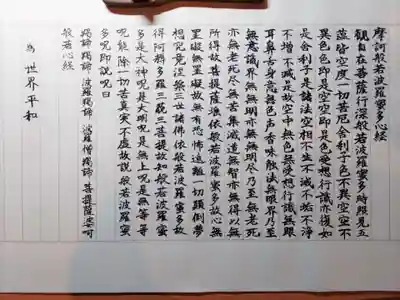 摩訶般若波羅蜜多心経
觀自在菩薩行深般若波羅蜜多時照見五
蘊皆空度一切苦厄舎利子色不異空空不
異色色即是空空即是色受想行識亦復如
是舎利子是諸法空相不生不滅不垢不浄
不増不減是故空中無色無受想行識無眼
耳鼻舌身意無色声香味触法無眼界乃至
無意識界無無明亦無無明尽乃至無老死
亦無老死尽無苦集滅道無智亦無得以無
所得故菩提薩埵依般若波羅蜜多故心無
罣礙無罣礙故無有恐怖遠離一切顛倒夢
想究竟涅槃三世諸仏依般若波羅蜜多故
得阿耨多羅三藐三菩提故知般若波羅蜜
多是大神呪是大明呪是無上呪是無等等
呪能除一切苦真実不虚故説般若波羅蜜
多呪即説呪曰
羯諦羯諦 波羅羯諦 波羅僧羯諦 菩提薩婆訶
般若心経
為 世界平和